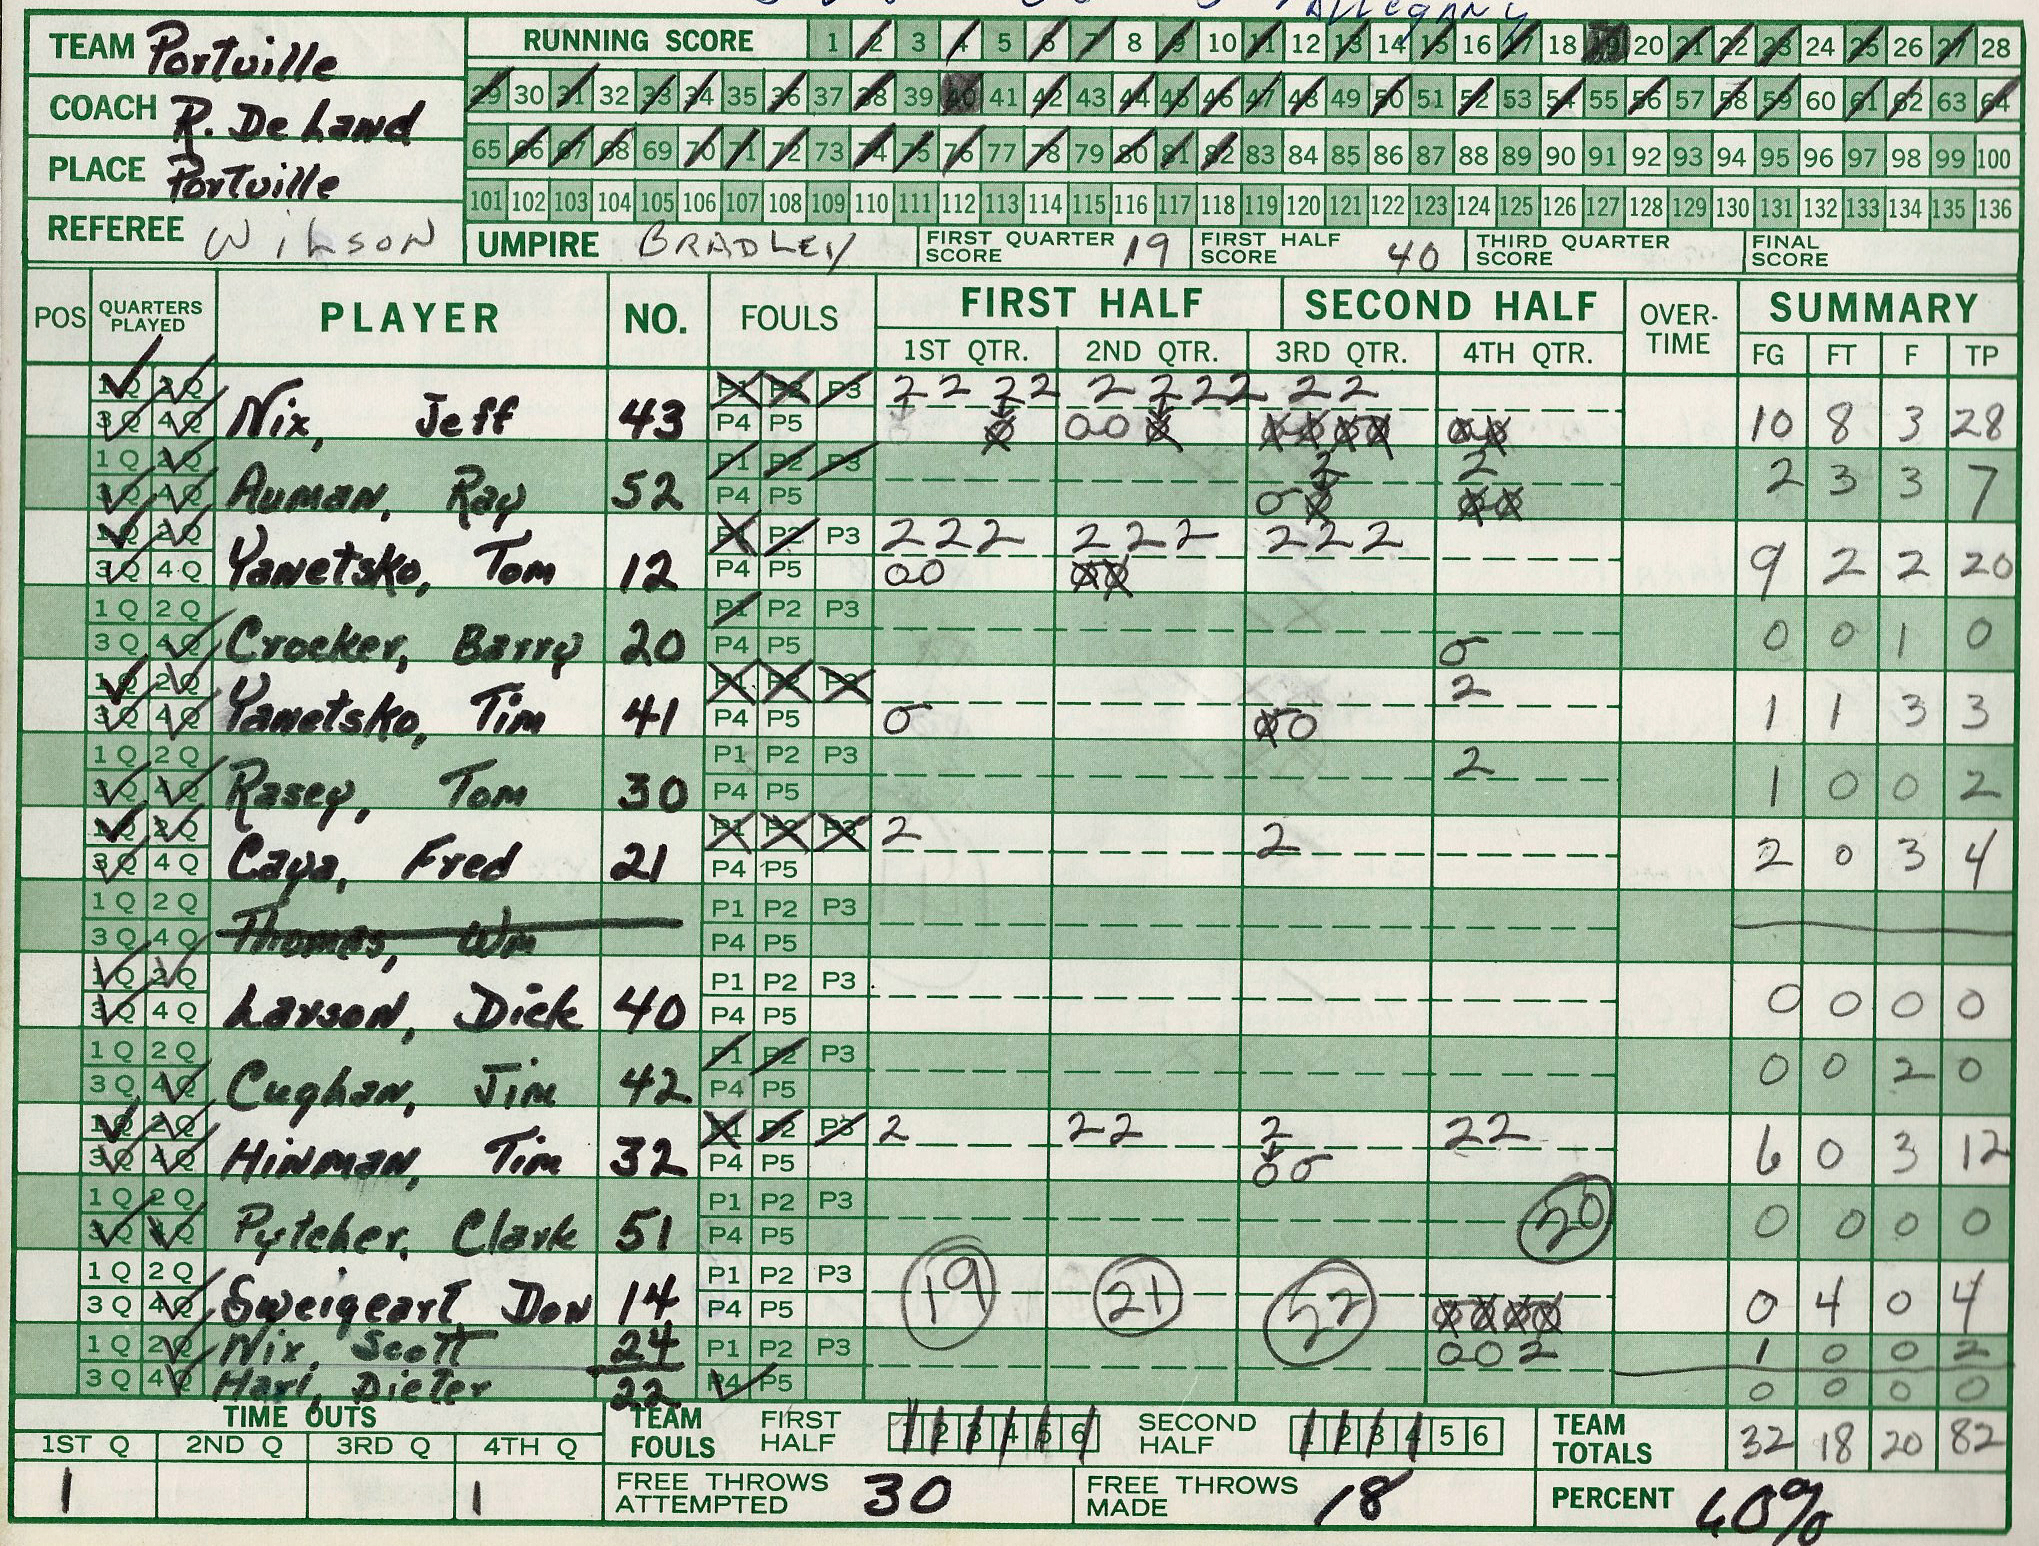 Allegany
TEAM Portville RUNNING SCORE 1 2 3 4 5 6 7 8 9 10 11 12 13 14 15 16 17 18 19 20 21 22 23 24 25 26 27 28
COACH R. DeLand 29 30 31 32 33 34 35 36 37 38 39 40 41 42 43 44 45 46 47 48 49 50 51 52 53 54 55 56 57 58 59 60 61 62 63 64
PLACE Portville 65 66 67 68 69 70 71 72 73 74 75 76 77 78 79 80 81 82 83 84 85 86 87 88 89 90 91 92 93 94 95 96 97 98 99 100
101 102 103 104 105 106 107 108 109 110 111 112 113 114 115 116 117 118 119 120 121 122 123 124 125 126 127 128 129 130 131 132 133 134 135 136
REFEREE Wilson UMPIRE BRADLEY FIRST QUARTER SCORE 19 FIRST HALF SCORE 40 THIRD QUARTER SCORE FINAL SCORE
POS QUARTERS PLAYED PLAYER NO. FOULS FIRST HALF SECOND HALF OVER-TIME SUMMARY
1ST QTR. 2ND QTR. 3RD QTR. 4TH QTR. FG FT F TP
1Q 2Q P1 P2 P3 2 2 2 2 2 2 2 2 2 2
3Q 4Q Nix, Jeff 43 P4 P5 0 0 0 10 8 3 28
1Q 2Q P1 P2 P3 2 2
3Q 4Q Auman, Ray 52 P4 P5 0 0 2 3 3 7
1Q 2Q P1 P2 P3 2 2 2 2 2 2 2 2 2
3Q 4Q Yanetsko, Tom 12 P4 P5 0 0 9 2 2 20
1Q 2Q P1 P2 P3
3Q 4Q Crocker, Barry 20 P4 P5 0 0 0 1 0
1Q 2Q P1 P2 P3 2
3Q 4Q Yanetsko, Tim 41 P4 P5 0 0 0 1 1 3 3
1Q 2Q P1 P2 P3 2
3Q 4Q Rasey, Tom 30 P4 P5 1 0 0 2
1Q 2Q P1 P2 P3 2 2
3Q 4Q Caya, Fred 21 P4 P5 2 0 3 4
1Q 2Q P1 P2 P3
3Q 4Q Thomas, Wm P4 P5
1Q 2Q P1 P2 P3
3Q 4Q Larson, Dick 40 P4 P5 0 0 0 0
1Q 2Q P1 P2 P3
3Q 4Q Cughan, Jim 42 P4 P5 0 0 2 0
1Q 2Q P1 P2 P3 2 2 2 2 2 2
3Q 4Q Hinman, Tim 32 P4 P5 0 0 6 0 3 12
1Q 2Q P1 P2 P3 20
3Q 4Q Pytcher, Clark 51 P4 P5 0 0 0 0
1Q 2Q P1 P2 P3
3Q 4Q Sweigeart, Don 14 P4 P5 19 21 22 0 0 0 0 0 4 0 4
1Q 2Q Nix, Scott 24 P1 P2 P3 0 0 2 1 0 0 2
3Q 4Q Harl, Dieter 22 P4 P5 0 0 0 0
TIME OUTS TEAM FOULS FIRST HALF 1 2 3 4 5 6 SECOND HALF 1 2 3 4 5 6 TEAM TOTALS 32 18 20 82
1ST Q 2ND Q 3RD Q 4TH Q
1 1 FREE THROWS ATTEMPTED 30 FREE THROWS MADE 18 PERCENT 60%